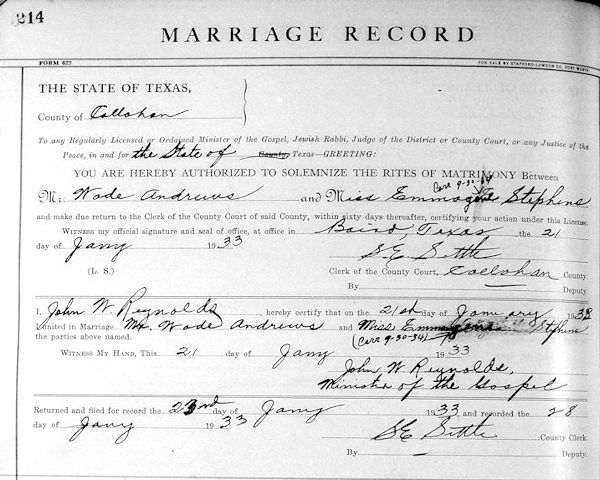 214
MARRIAGE RECORD
FORM 622
FOR SALE BY STAFFORD-LOWDON CO., FORT WORTH
THE STATE OF TEXAS,
County of Callahan
To any Regularly Licensed or Ordained Minister of the Gospel, Jewish Rabbi, Judge of the District or County Court, or any Justice of the
Peace, in and for the State of County Texas—GREETING:
YOU ARE HEREBY AUTHORIZED TO SOLEMNIZE THE RITES OF MATRIMONY Between
Corr 9-30-34
Mr. Wade Andrews and Miss Emmogene Stephens
and make due return to the Clerk of the County Court of said County, within sixty days thereafter, certifying your action under this License.
WITNESS my official signature and seal of office, at office in Baird, Texas the 21
day of Jany 1933 S.E. Settle
(L. S.) Clerk of the County Court, Callahan County.
By Deputy.
I, John W. Reynolds, hereby certify that on the 21st day of January 1933
united in Marriage Mr. Wade Andrews and Miss Emmogene Stephens
the parties above named. (Corr 9-30-34)
WITNESS MY HAND, This 21 day of Jany 1933
John W. Reynolds,
Minister of the Gospel
Returned and filed for record the 23rd day of Jany 1933 and recorded the 28
day of Jany 1933 S.E. Settle County Clerk.
By Deputy.